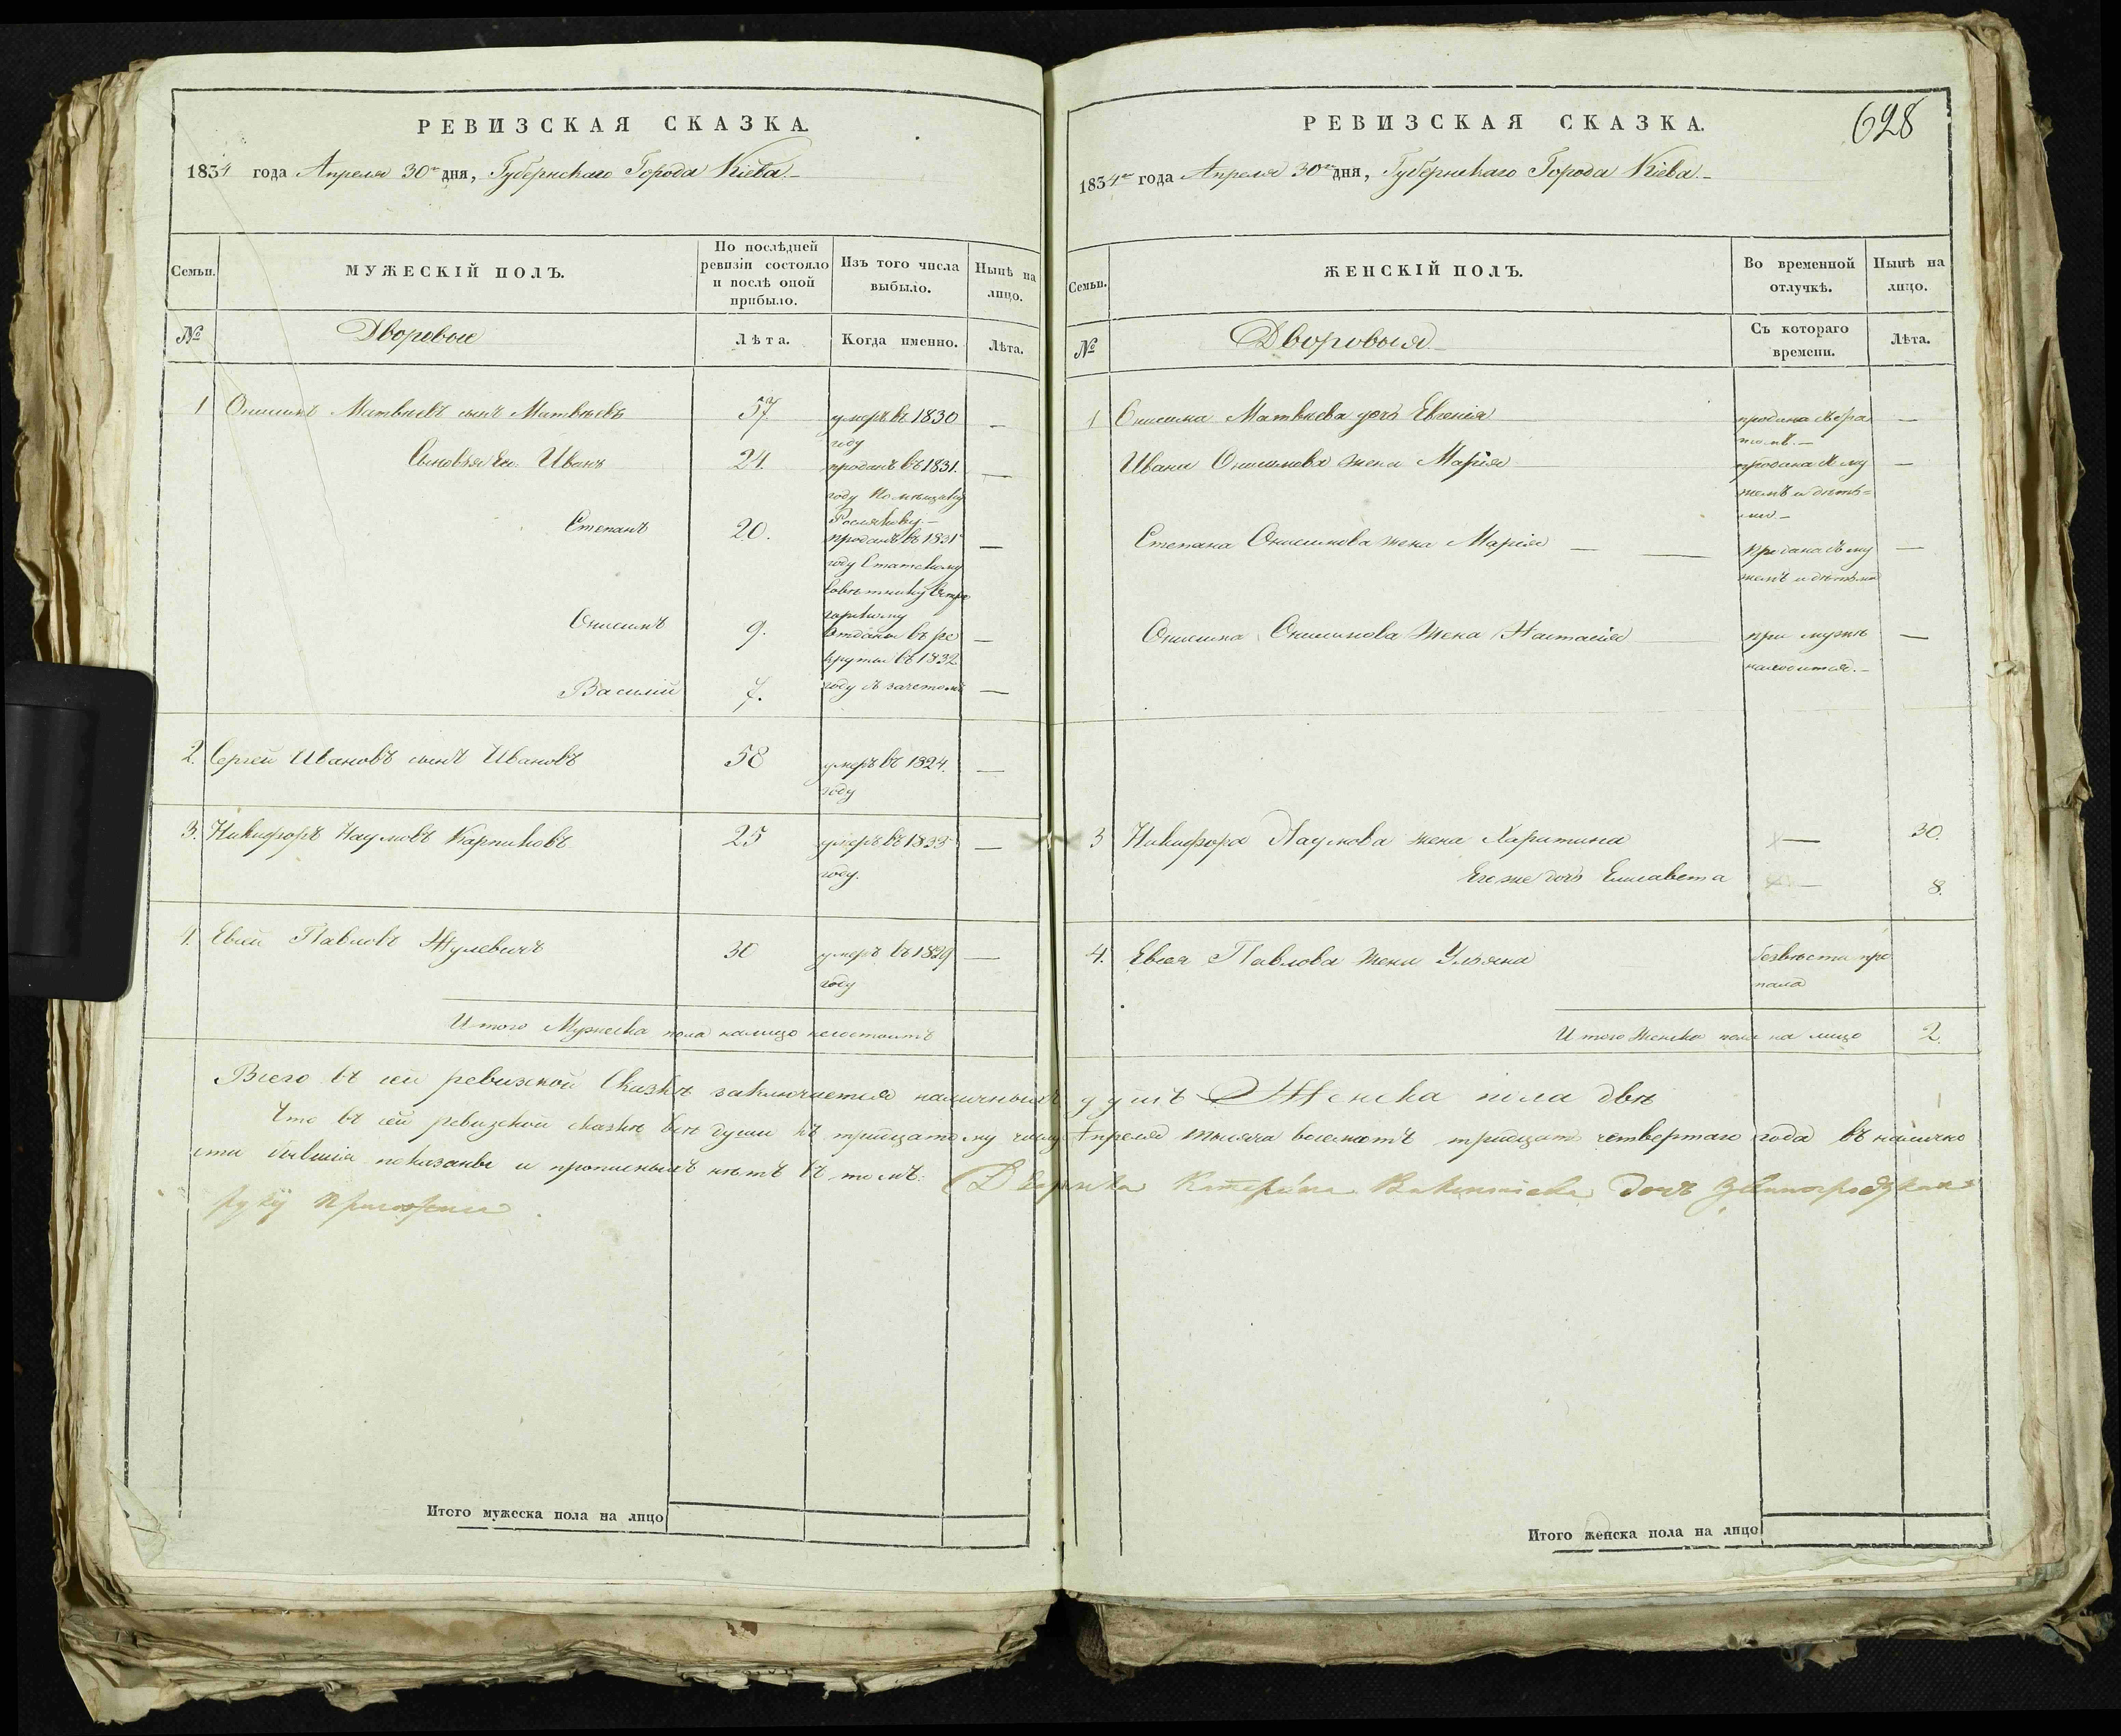 РЕВИЗСКАЯ СКАЗКА.
1834 года Апреля 30го дня, Губернскаго Города Кіева.
Семьи.
МУЖЕСКІЙ ПОЛЪ.
По послѣдней ревизіи состояло и послѣ оной прибыло.
Изъ того числа выбыло.
Нынѣ на лицо.
№
Дворовые
Лѣта.
Когда именно.
Лѣта.
1 Онисимъ Матвѣевъ сынъ Матвѣевъ 57. умеръ въ 1830 —
году
Сыновья Ею Иванъ 24. проданъ въ 1831. —
году Помѣщику
Рослякову. —
Степанъ 20. проданъ въ 1831 —
году Статскому
Совѣтнику
Онисимъ 9. Отданы въ ре —
круты въ 1832
Василій 7. году съ зачетомъ —
2. Сергей Ивановъ сынъ Ивановъ 58 умеръ въ 1824. —
году
3. Никифоръ Наумовъ Карпиковъ 25 умеръ въ 1833 —
году.
4. Евсей Павловъ Жулевичъ 30 умеръ въ 1829 —
году
Итого Мужеска пола налицо несостоитъ
РЕВИЗСКАЯ СКАЗКА.
628
1834го года Апреля 30го дня, Губернскаго Города Кіева. —
Семьи.
ЖЕНСКІЙ ПОЛЪ.
Во временной отлучкѣ.
Нынѣ на лицо.
№
Дворовыя
Съ котораго времени.
Лѣта.
1 Онисима Матвѣева дочь Евгенія продана съ бра —
томъ. —
Ивана Онисимова жена Марія продана съ му —
жемъ и дѣтъ=
ми —
Степана Онисимова жена Марія — — продана съ му —
жемъ и дѣтьми
Онисима Онисимова Жена Настасія при мужѣ —
находится. —
3 Никифора Наумова жена Харитина — 30.
Ее же дочь Елисавета — 8.
4. Евсея Павлова Жена Ульяна безвѣсти про
пала
Итого Женска пола на лицо 2.
Всего въ сей ревизской Сказкѣ заключается наличныхъ душъ Женска пола двѣ
Что въ сей ревизской сказкѣ всѣ души къ тридцатому числу Апреля тысяча восемсотъ тридцать четвертаго года въ налично
сти бывшія показаны и прописныхъ нѣтъ въ томъ. Дворянка Катерина дочь
руку приложила
Итого мужеска пола на лицо
Итого женска пола на лицо